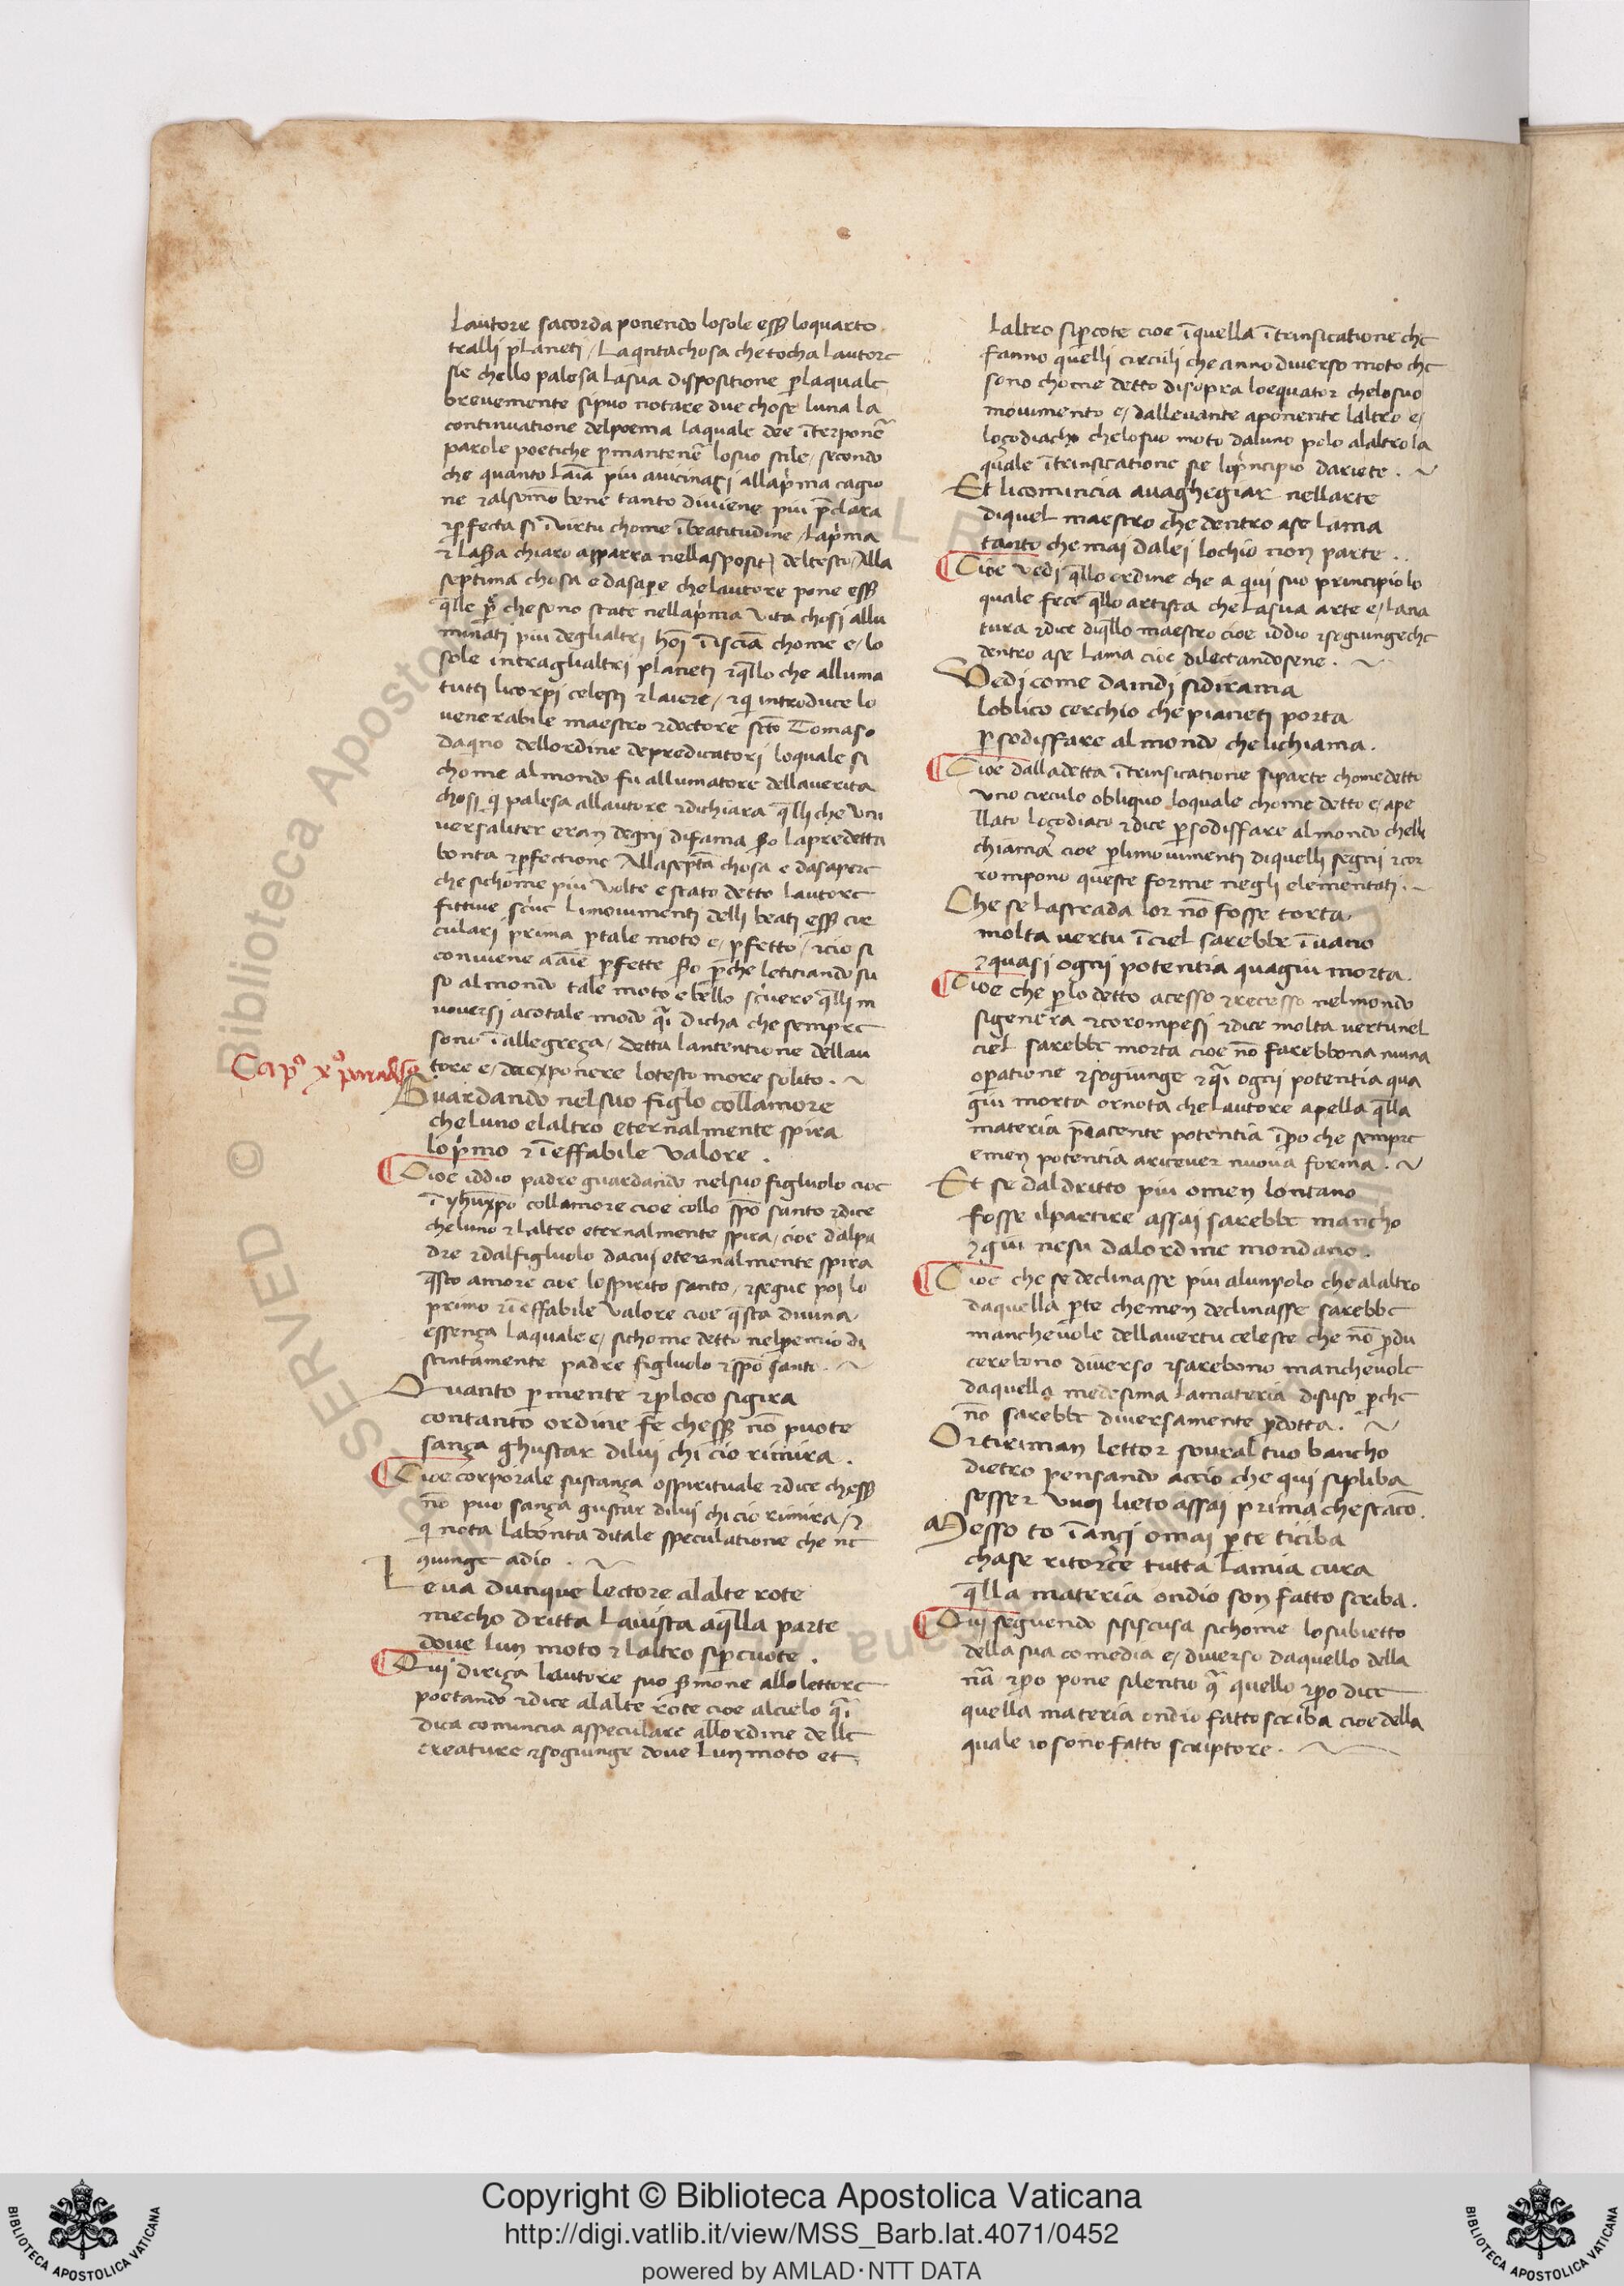 Lautore sacorda ponendo losole esse̅ loquarto
tralli planeti / Laqntachosa che tocha lautore
sie chello palesa lasua dispositione perlaquale
brevemente sipuo notare due chose luna la
continuatione delpoema laquale dee i̅terpone̅
parole poetiche pmantene̅ losuo stile, secondo
che quanto lai̅a̅ piu avicinasi allaprima cagio
ne ⁊ alsomo̅ bene tanto diviene piu p̅clara
⁊ pfecta si i̅virtu chome i̅beatitudine / laprima
chiaro apparra nellasposit deltesto / Alla
septima chosa e dasape chelautore pone esse̅
q̅lle p̅ che sono state nellaprima vita chosi allu
minati piu deglialtri ho̅i̅ i̅scie̅ia̅ chome e / lo
sole intraglialtri planeti ⁊ q̅llo che alluma
tutti licorpi celesti ⁊ laiere / ⁊ qi introduce lo
venerabile maestro ⁊ doctore sc̅to Tomaso
daqino dellordine depredicatori loquale si
chome almondo fu allumatore dellaverita
chosi qi palesa allautore ⁊ dichiara q̅lli che uni
versaliter eran degni difama p̱o lapredetta
bonta ⁊ pfectione Allasepta̅ chosa e dasapere
che sichome piu volte e stato detto lautore
fittive scrive limovimenti delli beati esse̅ cir
culari prima ptale moto e / pfetto / ⁊ cio si
conviene a ai̅e̅ pfette p̱o p̅che letitiando su
so almondo tale moto e bello
uoversi acotale modo q̅i dicha che sempre
sono i̅allegreça / detta lantentione dellau
tore e / daexponere lotesto more solito .
Cap̊ x̊ paradiso
Guardando nelsuo figlo collamore
cheluno elaltro eternalmente spira
loprimo ⁊ i̅effabile valore .
Cioe iddio padre guardando nelsuo figluolo cioe
i̅ yhu̅xpo̅ collamore cioe collo spo̅ santo ⁊ dice
cheluno ⁊ laltro eternalmente spira / cioe dalpa
dre ⁊ dalfigluolo dacui eternalmente spira
q̅sto amore cioe lospirito santo / ⁊ segue poi lo
primo ⁊ i̅effabile valore cioe q̅sta divina
essença laquale e / sichome detto nelpemio di
stintamente padre figluolo ⁊ spo̅ santo .
Quanto pmente ⁊ ploco sigira
contanto ordine fe̅ chesse̅ no̅ puote
sança ghustar dilui chi cio rimira .
Cioe corporale sustança ospirituale ⁊ dice chesse̅
no̅ puo sança gustar dilui chi cio rimira / ⁊
qi nota labonta ditale speculatione che ne
9iunge adio .
Leva dunque lectore alalte rote
mecho dritta lavista aq̅lla parte
dove lun moto ⁊ laltro sipcuote .
Qui diriça lautore suo s̅mone allolettore
poetando ⁊ dice alalte rote cioe alcielo q̅i
dica comincia aspeculare allordine delle
creature ⁊ sogiunge dove lun moto et
laltro sipcote cioe i̅quella i̅trinsicatione che
fanno quelli circuli che anno diverso moto che
sono chome detto disopra loequator chelosuo
movimento e / dallevante aponente laltro e /
loçodiacho chelosuo moto daluno polo alaltro la
quale i̅trinsicatione sie loprincipio dariete .
Et licomincia avaghegiar nellarte
diquel maestro che dentro ase lama
tanto che mai dalei lochio non parte .
Cioe vedi q̅llo ordine che a qui suo principio lo
quale fece q̅llo artista chelasua arte e / lana
tura ⁊ dice diq̅llo maestro cioe iddio ⁊ sogiungeche
dentro ase lama cioe dilectandosene .
Vedi come daindi sidirama
loblico cerchio che pianeti porta
psodisfare almondo chelichiama .
Cioe dalladetta i̅trinsicatione siparte chomedetto
uno circulo obliquo loquale chome detto e / ape
llato loçodiaco ⁊ dice psodisfare almondo chelli
chiama cioe plimovimenti diquelli segni ⁊ cor
rompono queste forme negli elementati .
Che se lastrada lor no̅ fosse torta
molta vertu i̅ciel sarebbe i̅vano
⁊ quasi ogni potentia quagiu morta .
Cioe che plo detto acesso ⁊ recesso nelmondo
sigenera ⁊ corompesi ⁊ dice molta vertu nel
ciel sarebbe morta cioe no̅ farebbona niuna
opatione ⁊ sogiunge ⁊ q̅i ogni potentia qua
giu morta ornota chelautore apella q̅lla
materia p̅iacente potentia i̅po che sempre
emen potentia aricever nuova forma .
Et se daldritto piu omen lontano
fosse ilpartire assai sarebbe mancho
⁊ giu nesu dalordine mondano .
Cioe che sedeclinasse piu alunpolo che alaltro
daquella pte chemen declinasse sarebbe
manchevole dellavertu celeste che no̅ pdu
cerebono diverso ⁊ sarebono manchevole
daquella medesima lamateria disuso pche
no̅ sarebbe diversamente pdotta .
Ortiriman lettor sovraltuo bancho
dietro pensando accio che qui sipliba
sesser vuoi lieto assai prima chestaco̅ .
Messo to i̅ançi omai pte ticiba
chase ritorce tutta lamia cura
q̅lla materia ondio son fatto scriba .
Qui seguendo sisiscusa sichome losubietto
della sua comedia e / diverso daquello della
na̅ ⁊ po pone silentio q̅ quello ⁊ po dice
quella materia ondio fatto scriba cioe della
quale io sono fatto scriptore .
Copyright © Biblioteca Apostolica Vaticana
http://digi.vatlib.it/view/MSS_Barb.lat.4071/0452
powered by AMLAD·NTT DATA
BIBLIOTECA APOSTOLICA VATICANA
BIBLIOTECA APOSTOLICA VATICANA